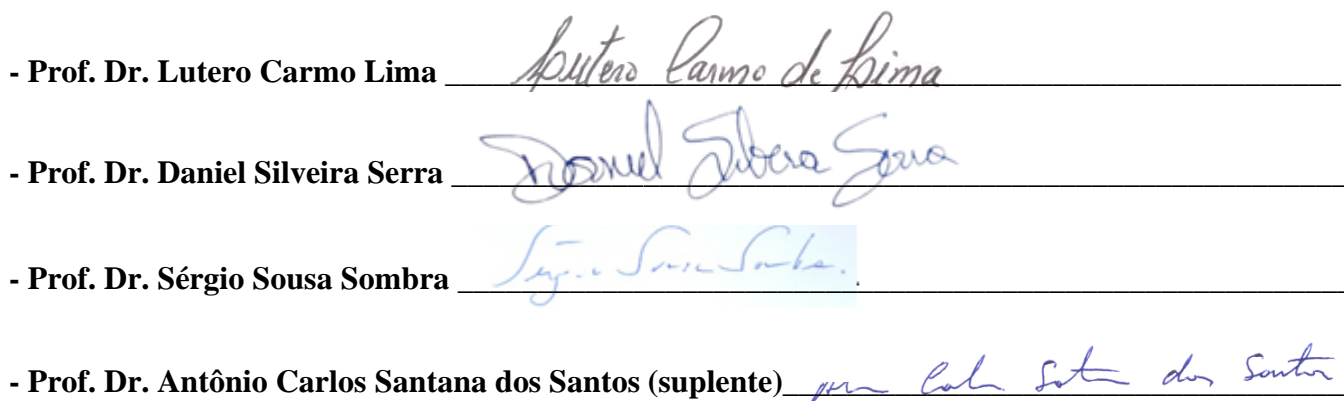 - Prof. Dr. Lutero Carmo Lima Lutero Carmo de Lima
- Prof. Dr. Daniel Silveira Serra Daniel Silveira Serra
- Prof. Dr. Sérgio Sousa Sombra Sérgio Sousa Sombra.
- Prof. Dr. Antônio Carlos Santana dos Santos (suplente) dos Santos